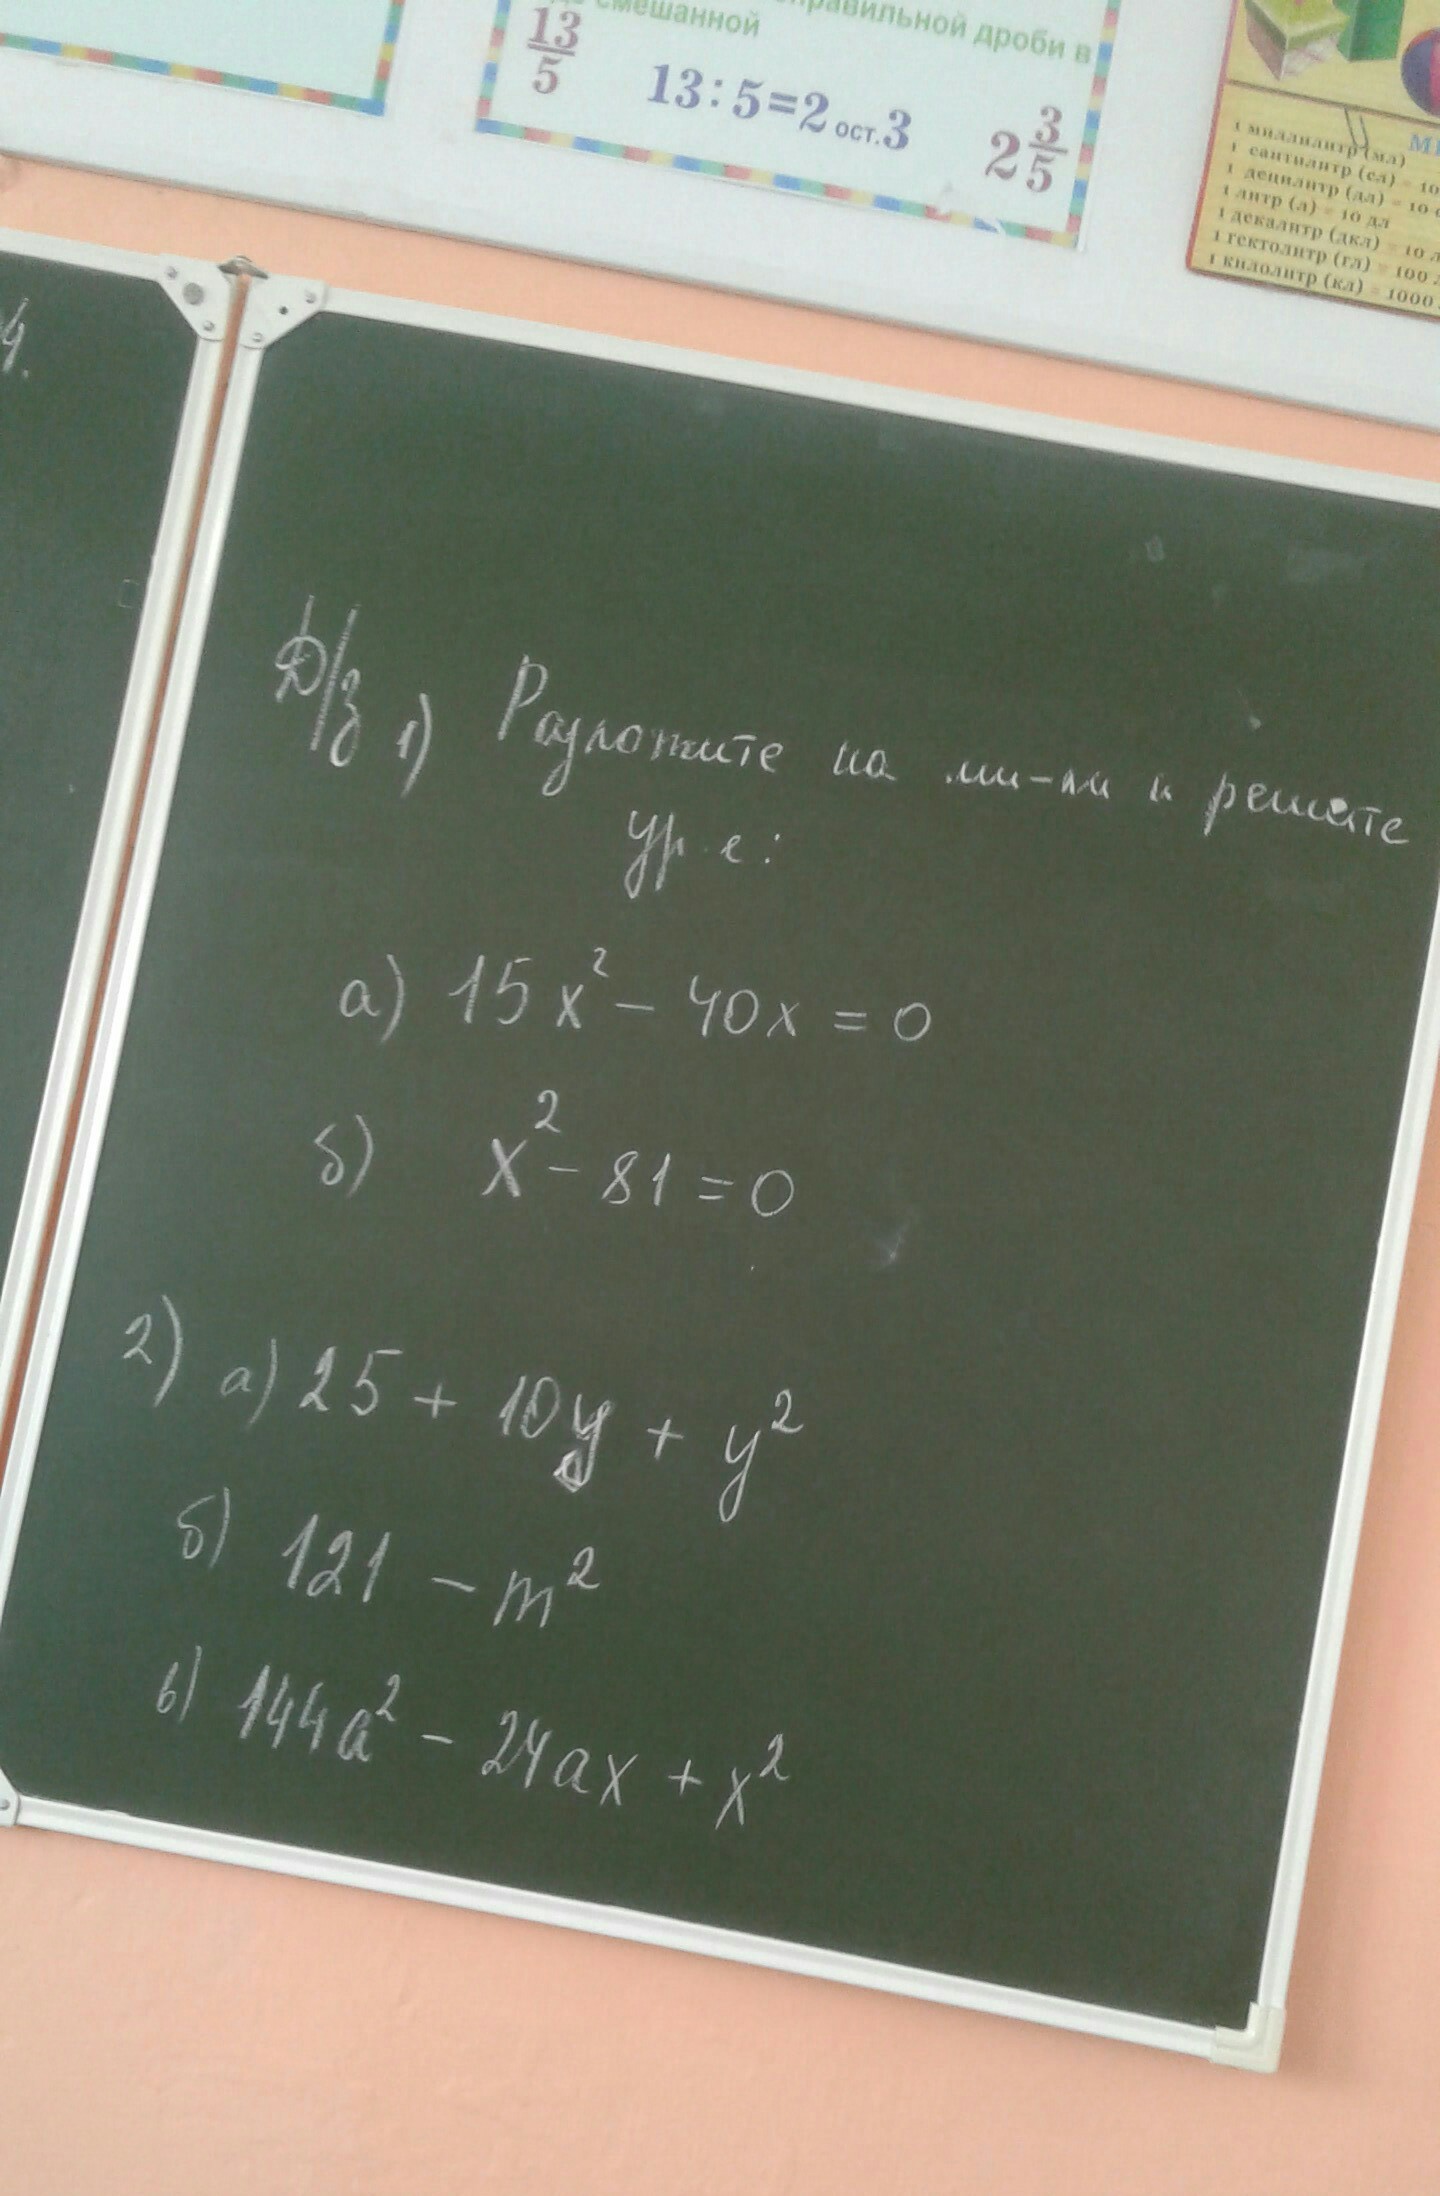 смешанной
правильной дроби в
13/5
13:5=2 ост.3
2 3/5
1 миллилитр (мл)
1 сантилитр (сл) = 10
1 децилитр (дл) = 10
1 литр (л) = 10 дл
1 декалитр (дкл) = 10 л
1 гектолитр (гл) = 100
1 килолитр (кл) = 1000
4.
Д/з 1) Разложите на мн-ли и решите
ур-е:
а) 15x² - 40x = 0
б) x² - 81 = 0
2) а) 25 + 10y + y²
б) 121 - m²
в) 144a² - 24ax + x²